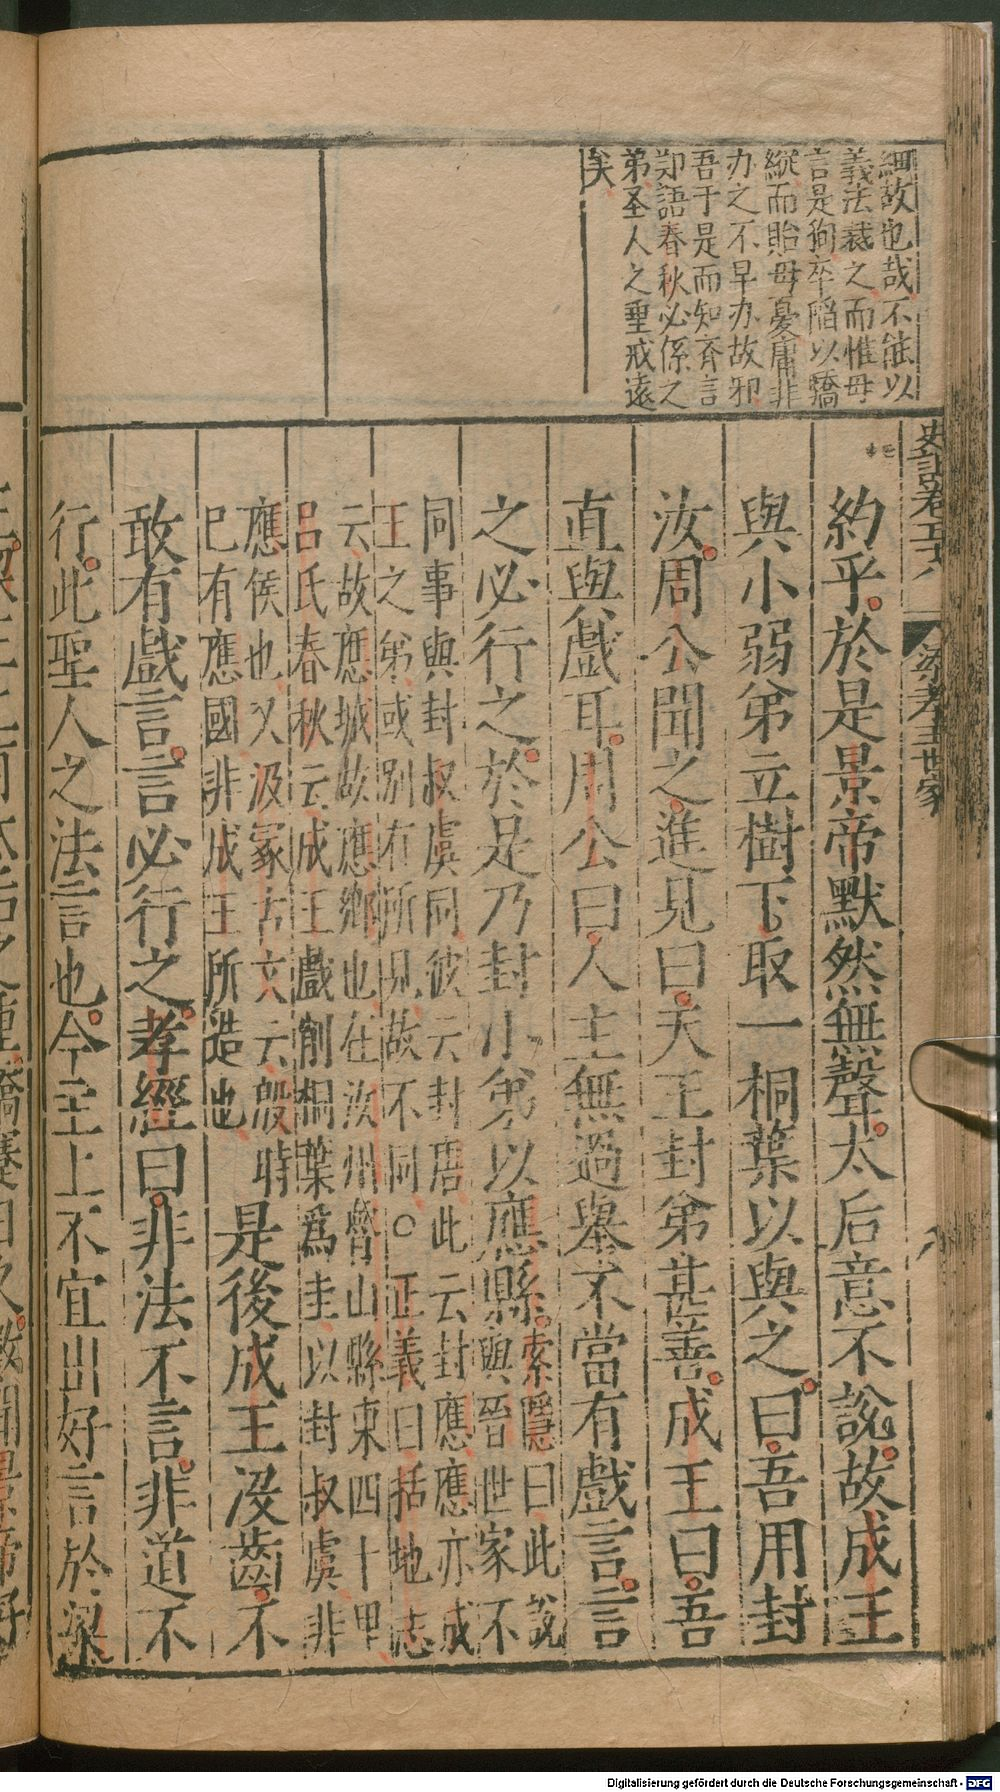 細故也哉不能以
義法裁之而惟母
言是狥卒陷以驕
縱而貽母憂庸非
办之不早办故邪
吾于是而知齊言
郑語春秋必係之
弟圣人之垂戒遠
矣
史記卷五十八
梁孝王世家
八
約乎於是景帝默然無聲太后意不說故成王
與小弱弟立樹下取一桐葉以與之曰吾用封
汝周公聞之進見曰天王封弟甚善成王曰吾
直與戲耳周公曰人主無過舉不當有戲言言
之必行之於是乃封小弟以應縣
索隱曰此說
與晉世家不
同事與封叔虞同彼云封唐此云封應應亦成
王之弟或別有所見故不同○正義曰括地志
云故應城故應鄉也在汝州魯山縣東四十里
呂氏春秋云成王戲削桐葉爲圭以封叔虞非
應侯也又汲冢古文云殷時
已有應國非成王所造也
是後成王沒齒不
敢有戲言言必行之孝經曰非法不言非道不
行此聖人之法言也今主上不宜出好言於梁
Digitalisierung gefördert durch die Deutsche Forschungsgemeinschaft - DFG